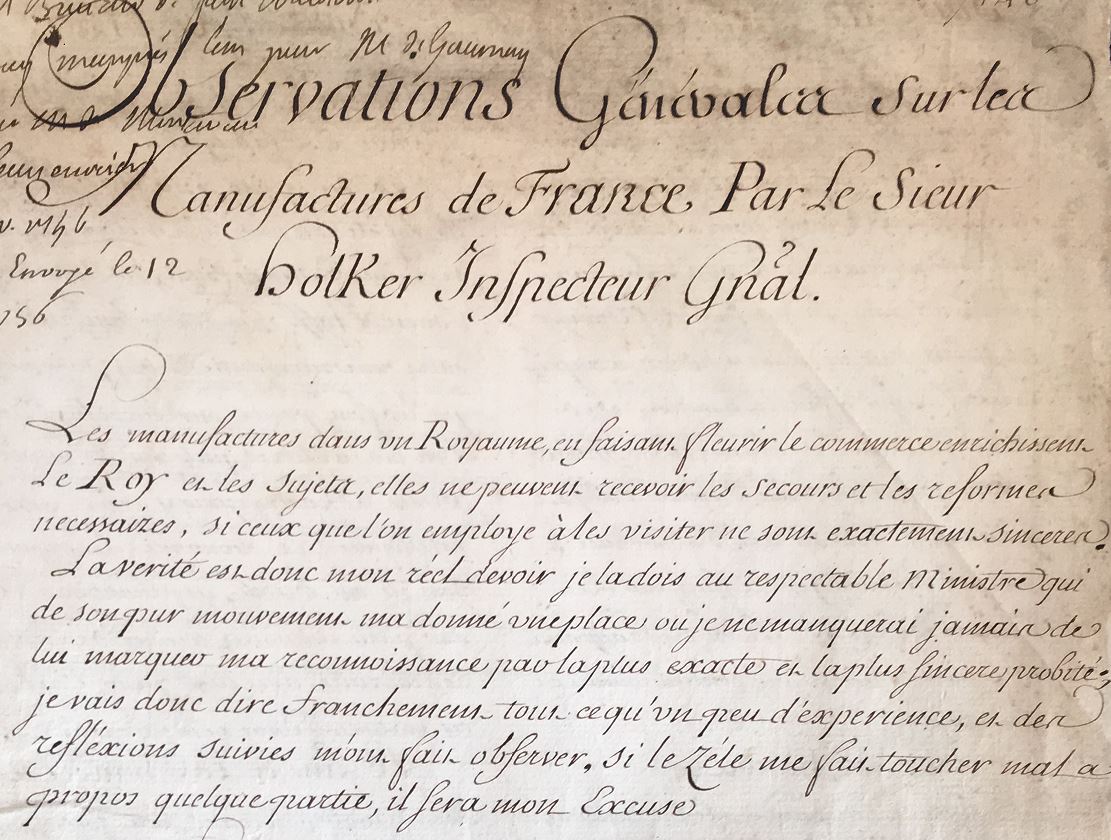 lem pour M de Gournay
Observations Générales sur les
Manufactures de France, Par Le Sieur
Envoyé le 12
Holker Inspecteur Gñal.
Les manufactures dans vn Royaume, en faisant fleurir le commerce enrichissent
Le Roy et les Sujets, elles ne peuvent recevoir les secours et les reformes
necessaires, si ceux que l'on employe à les visiter ne sont exactement sinceres.
La verité est donc mon reel devoir je la dois au respectable Ministre qui
de son pur mouvement ma donné vne place ou je ne manquerai jamais de
lui marquer ma reconnoissance par la plus exacte et la plus sincere probité;
je vais donc dire franchement tout ce qu'vn peu d'experience, et des
refléxions suivies mont fait observer. Si le Zéle me fait toucher mal a
propos quelque partie, il sera mon Excuse